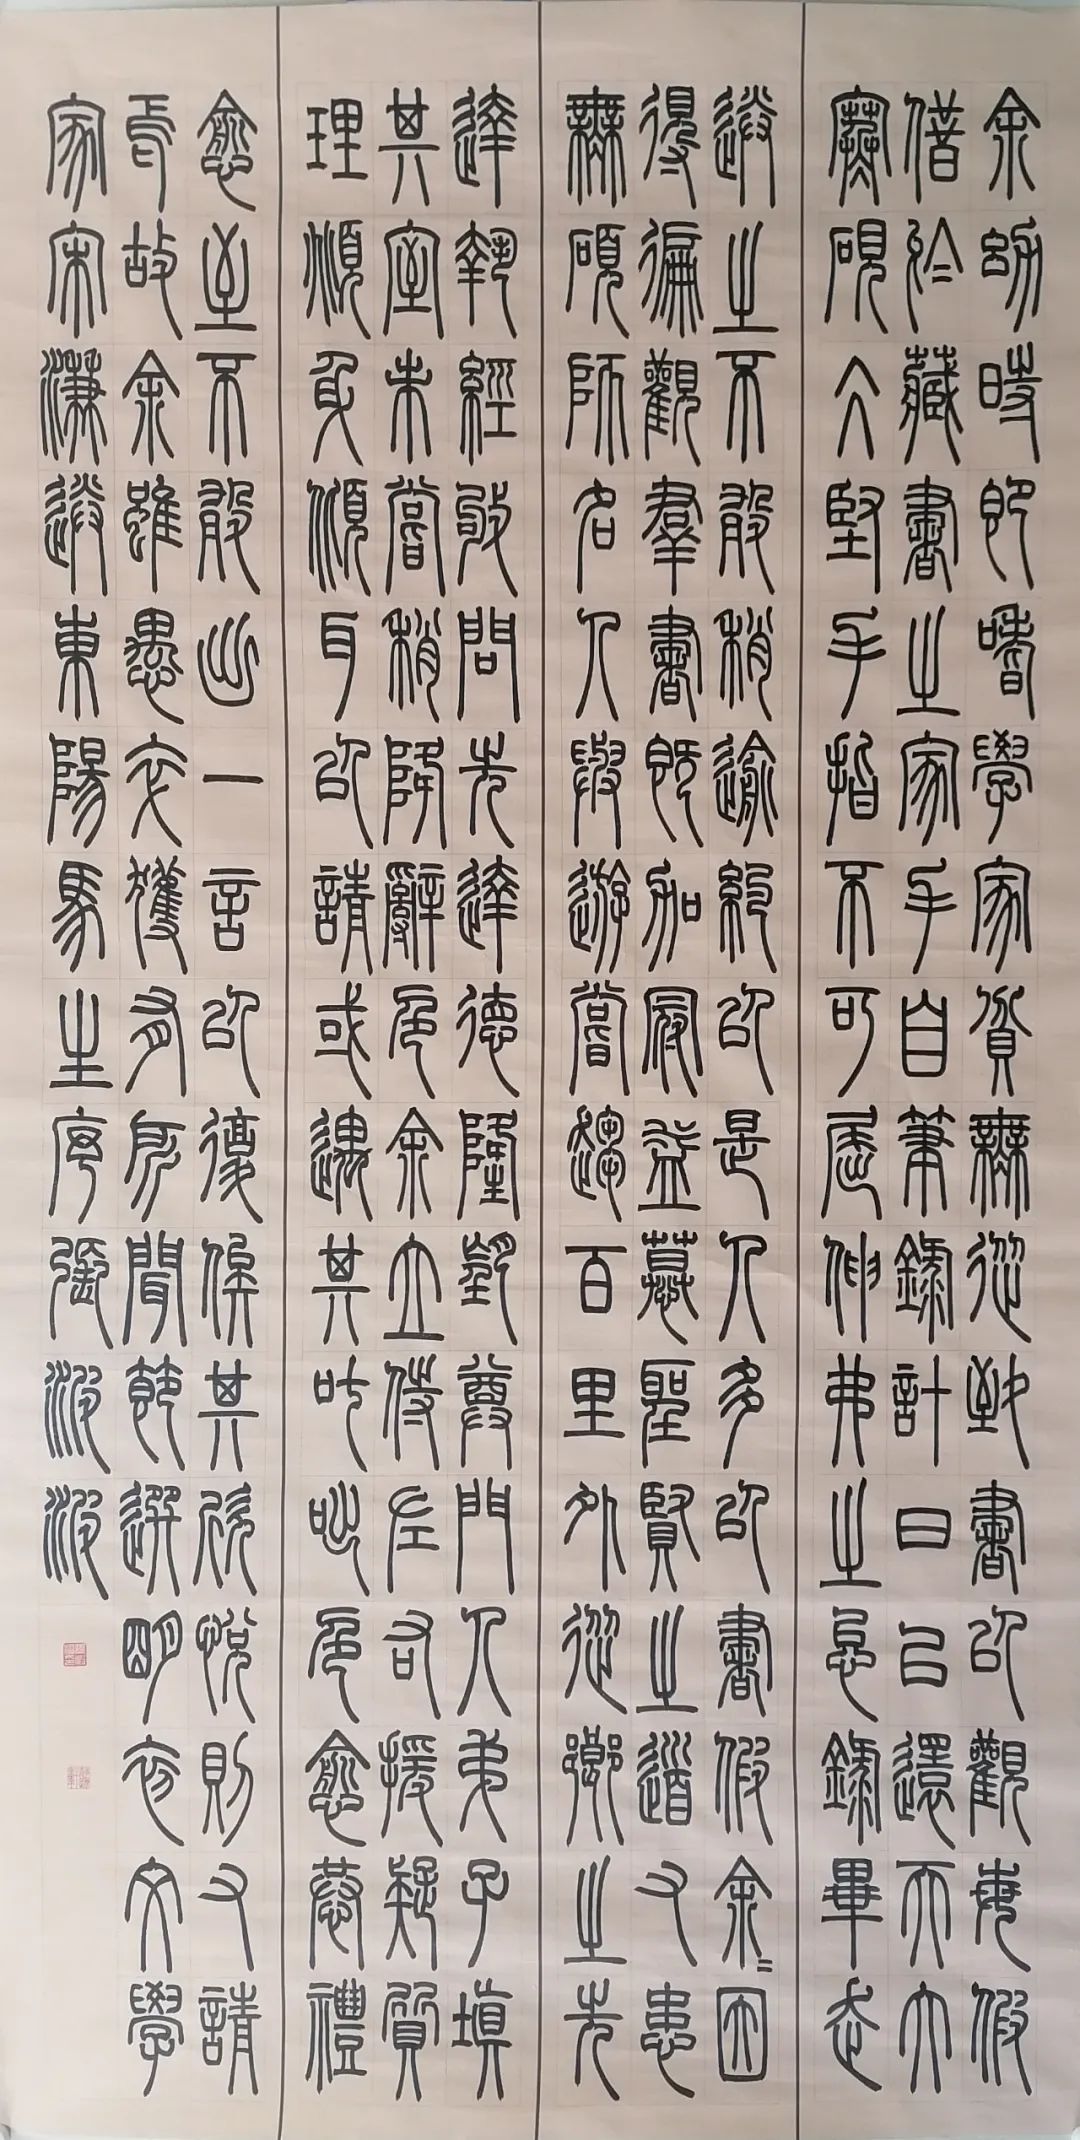 余幼時即嗜學家貧無從致書以觀每假
借於藏書之家手自筆錄計日以還天大
寒硯冰堅手指不可屈伸弗之怠錄畢走
送之不敢稍逾約以是人多以書假余=因
得徧觀羣書既加冠益慕聖賢之道又患
無碩師名人與遊嘗趨百里外從鄉之先
達執經敂問先達德隆望尊門人弟子填
其室未嘗稍降辭色余立侍左右援疑質
理頫身傾耳以請或遇其叱咄色愈恭禮
愈至不敢出一言以復俟其欣悅則又請
焉故余雖愚卒獲有所聞節選明初文學
家宋濂送東陽馬生序張